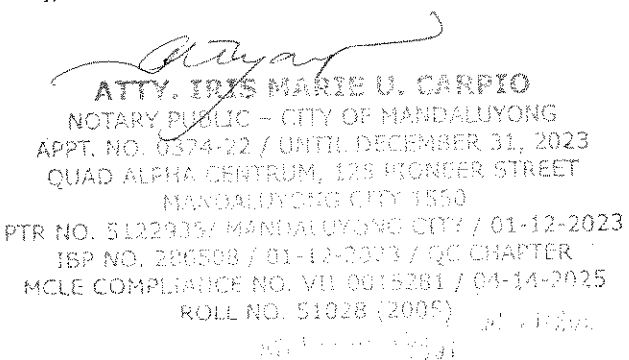 ATTY. IRIS MARIE U. CARPIO
NOTARY PUBLIC – CITY OF MANDALUYONG
APPT. NO. 0374-22 / UNTIL DECEMBER 31, 2023
QUAD ALPHA CENTRUM, 125 PIONEER STREET
MANDALUYONG CITY 1550
PTR NO. 5122935/ MANDALUYONG CITY / 01-12-2023
IBP NO. 286508 / 01-12-2023 / QC CHAPTER
MCLE COMPLIANCE NO. VII 0015281 / 04-14-2025
ROLL NO. 51028 (2005)